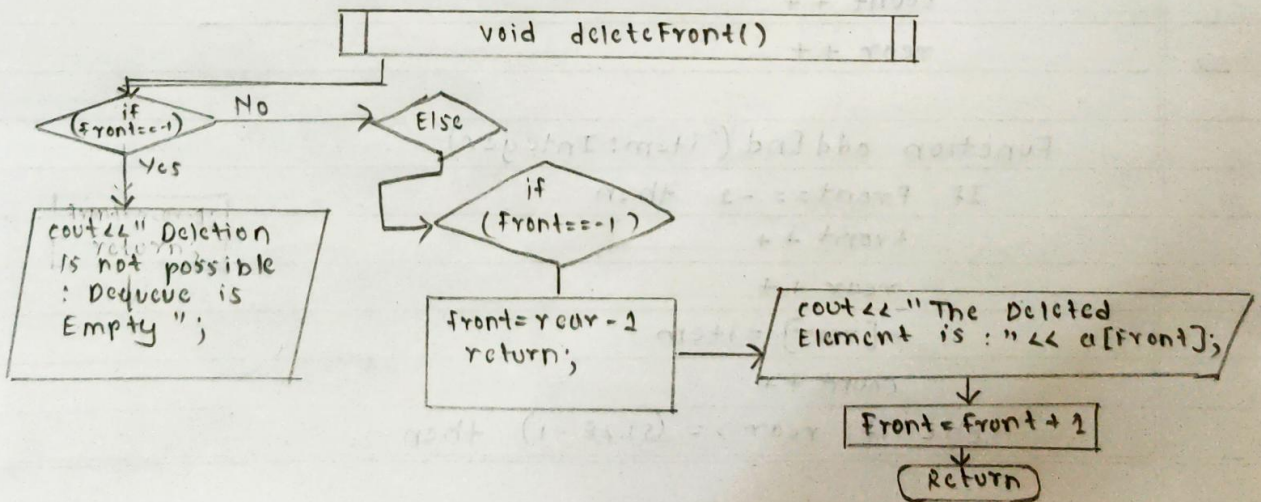 void deleteFront()
if
(front==-1)
No
Else
Yes
if
(front==-1)
cout<<" Deletion
is not possible
: Dequeue is
Empty ";
front=rear-1
return;
cout<<"The Deleted
Element is : " << a[front];
front = front + 1
Return